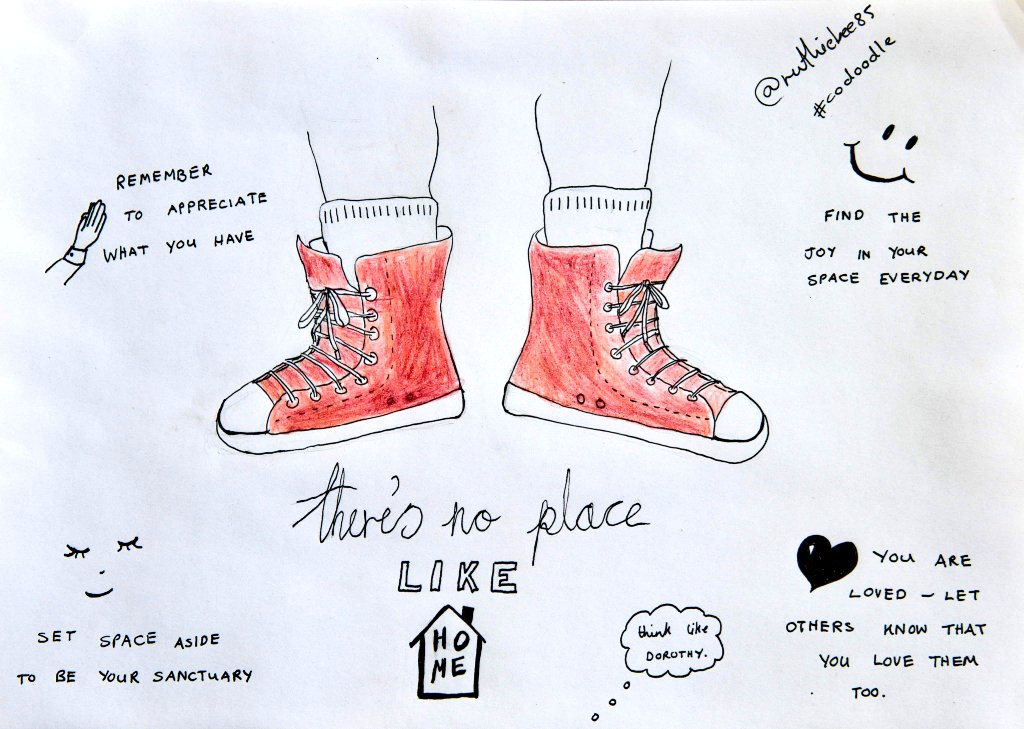 @ruthiehee85
#codoodle
REMEMBER
TO APPRECIATE
WHAT YOU HAVE
FIND THE
JOY IN YOUR
SPACE EVERYDAY
there's no place
LIKE
HO
ME
SET SPACE ASIDE
TO BE YOUR SANCTUARY
think like
DOROTHY.
YOU ARE
LOVED – LET
OTHERS KNOW THAT
YOU LOVE THEM
TOO.